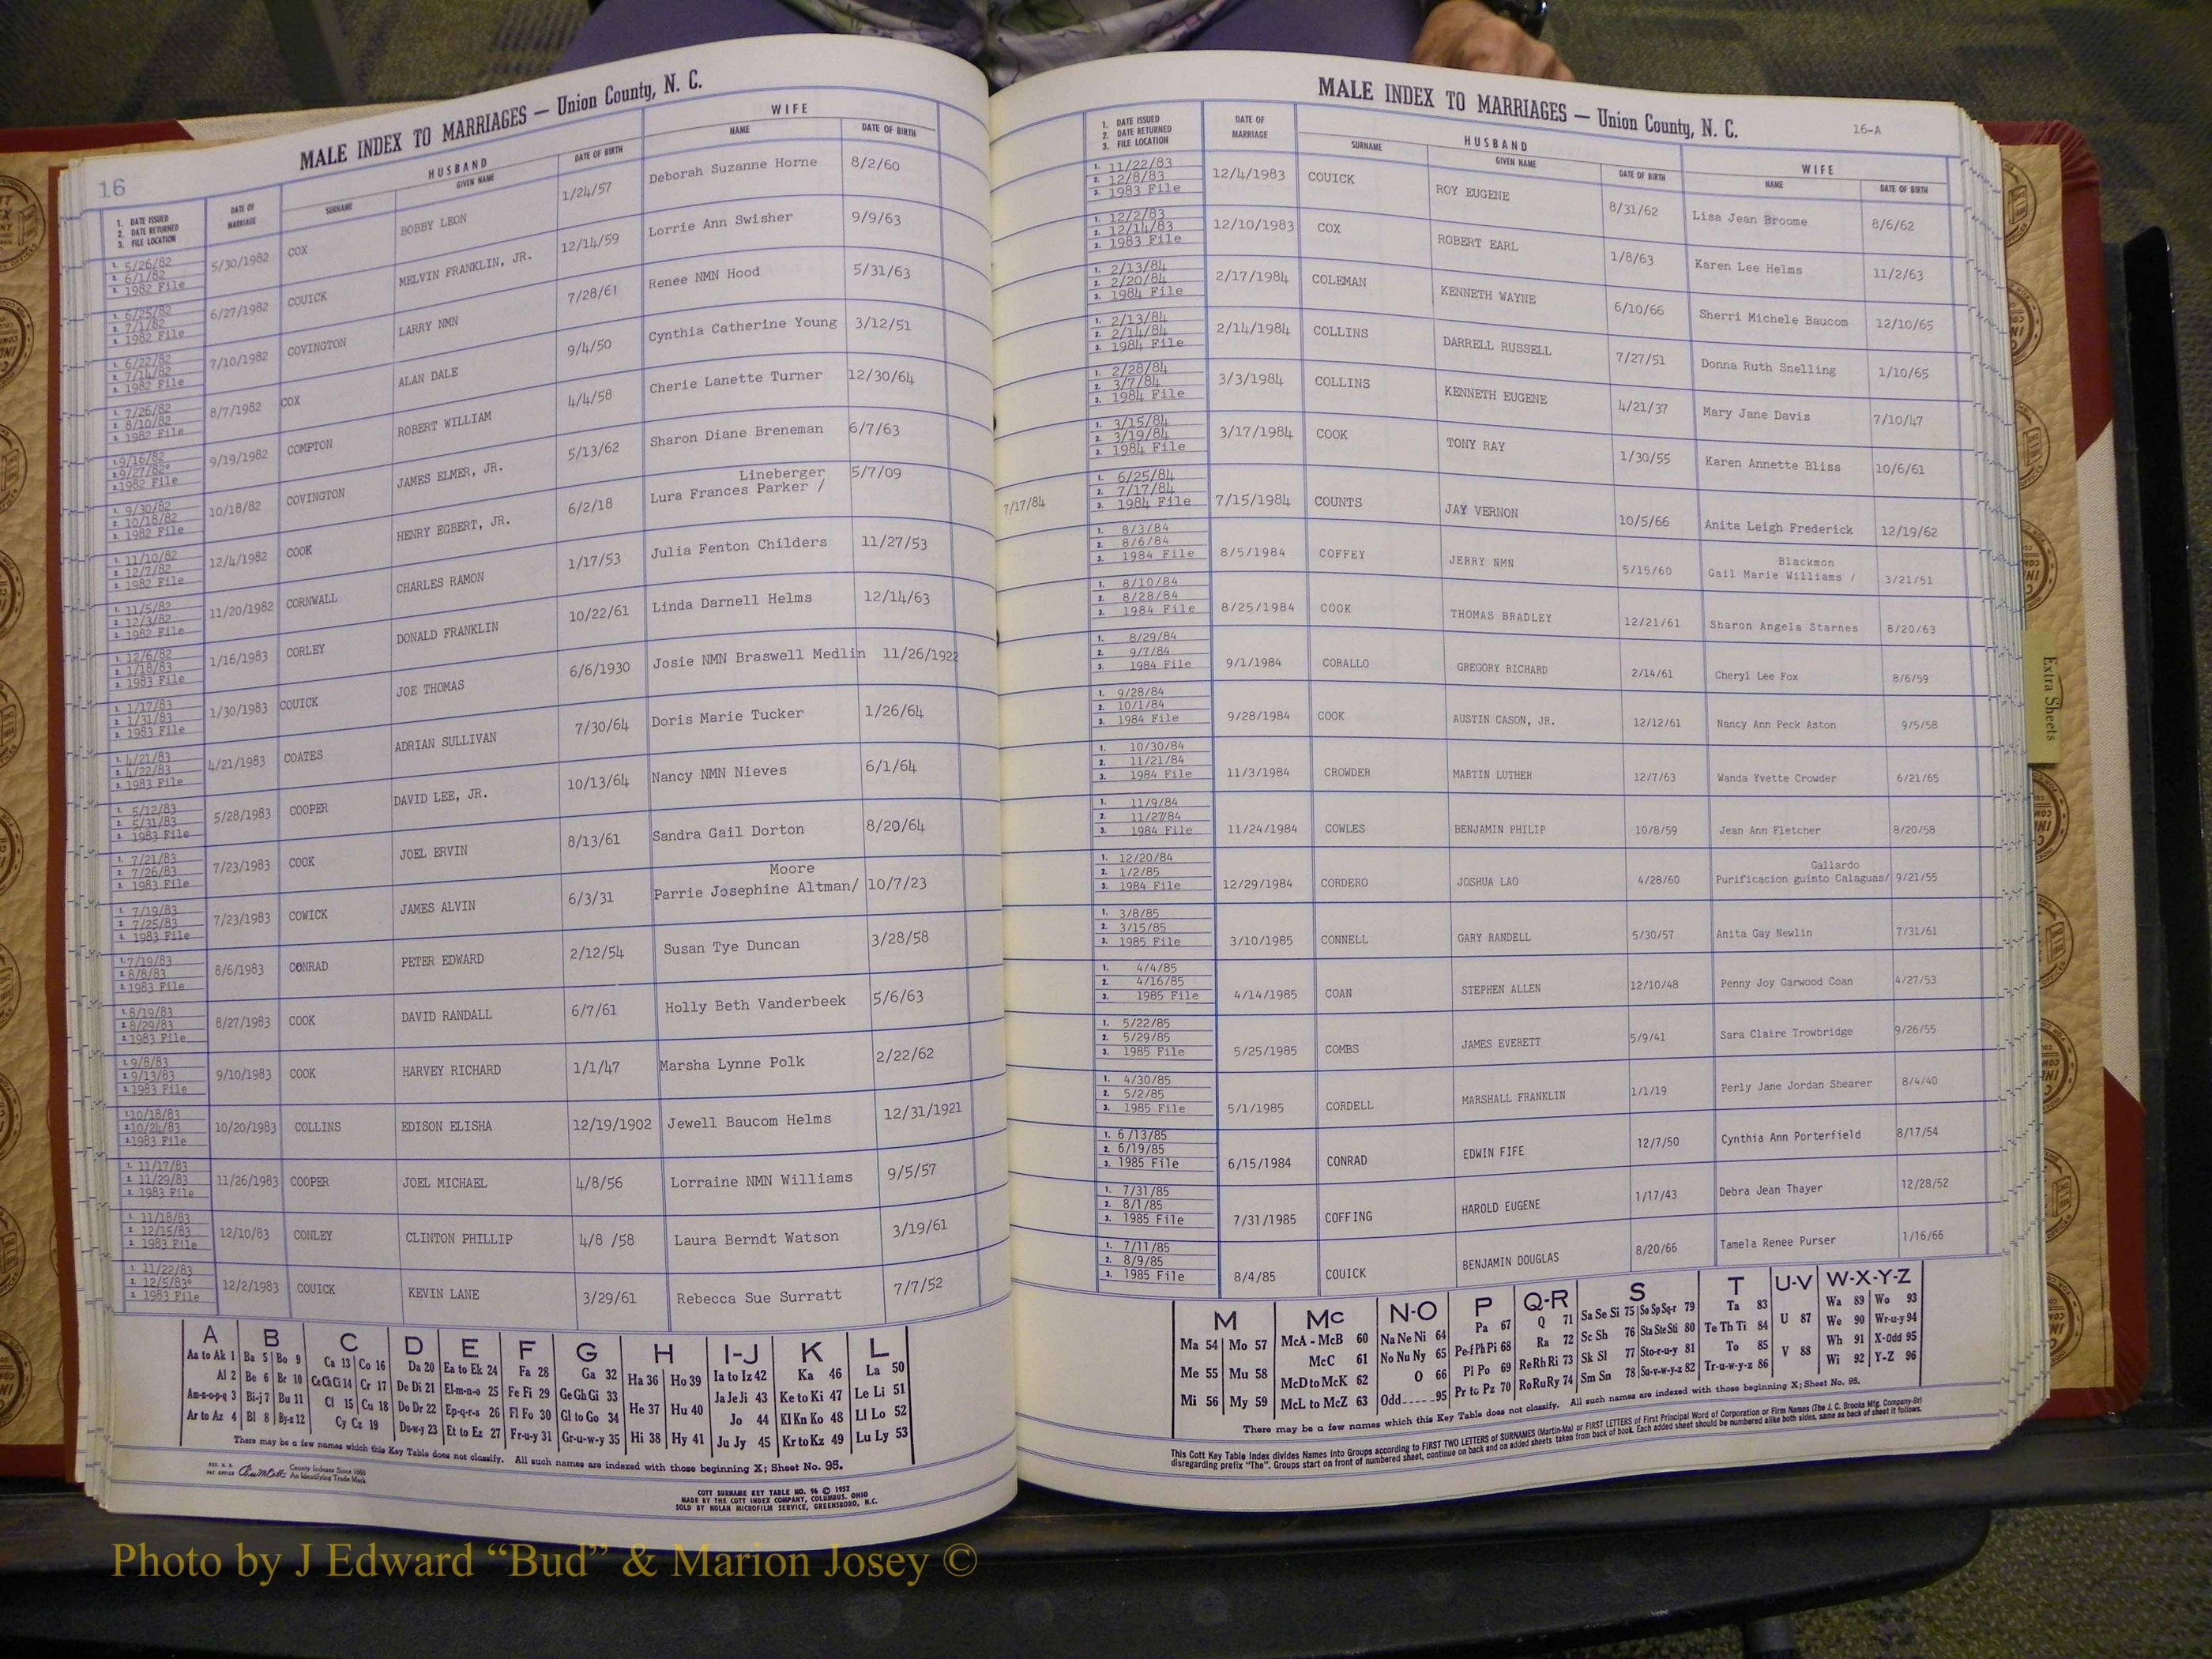 MALE INDEX TO MARRIAGES — Union County, N. C.
16
1. DATE ISSUED 2. DATE RETURNED 3. FILE LOCATION DATE OF MARRIAGE HUSBAND SURNAME GIVEN NAME DATE OF BIRTH WIFE NAME DATE OF BIRTH
1. 5/26/82 2. 6/1/82 3. 1982 File 5/30/1982 COX BOBBY LEON 1/24/57 Deborah Suzanne Horne 8/2/60
1. 6/25/82 2. 7/1/82 3. 1982 File 6/27/1982 COUICK MELVIN FRANKLIN, JR. 12/14/59 Lorrie Ann Swisher 9/9/63
1. 6/22/82 2. 7/14/82 3. 1982 File 7/10/1982 COVINGTON LARRY NMN 7/28/61 Renee NMN Hood 5/31/63
1. 7/26/82 2. 8/10/82 3. 1982 File 8/7/1982 COX ALAN DALE 9/4/50 Cynthia Catherine Young 3/12/51
1. 9/16/82 2. 9/27/82 3. 1982 File 9/19/1982 COMPTON ROBERT WILLIAM 4/4/58 Cherie Lanette Turner 12/30/64
1. 9/30/82 2. 10/18/82 3. 1982 File 10/18/82 COVINGTON JAMES ELMER, JR. 5/13/62 Sharon Diane Breneman 6/7/63
1. 11/10/82 2. 12/7/82 3. 1982 File 12/4/1982 COOK HENRY EGBERT, JR. 6/2/18 Lura Frances Parker / Lineberger 5/7/09
1. 11/5/82 2. 12/3/82 3. 1982 File 11/20/1982 CORNWALL CHARLES RAMON 1/17/53 Julia Fenton Childers 11/27/53
1. 12/6/82 2. 1/18/83 3. 1983 File 1/16/1983 CORLEY DONALD FRANKLIN 10/22/61 Linda Darnell Helms 12/14/63
1. 1/17/83 2. 1/31/83 3. 1983 File 1/30/1983 COUICK JOE THOMAS 6/6/1930 Josie NMN Braswell Medlin 11/26/1922
1. 4/21/83 2. 4/22/83 3. 1983 File 4/21/1983 COATES ADRIAN SULLIVAN 7/30/64 Doris Marie Tucker 1/26/64
1. 5/12/83 2. 5/31/83 3. 1983 File 5/28/1983 COOPER DAVID LEE, JR. 10/13/64 Nancy NMN Nieves 6/1/64
1. 7/21/83 2. 7/26/83 3. 1983 File 7/23/1983 COOK JOEL ERVIN 8/13/61 Sandra Gail Dorton 8/20/64
1. 7/19/83 2. 7/25/83 3. 1983 File 7/23/1983 COWICK JAMES ALVIN 6/3/31 Parrie Josephine Altman/ Moore 10/7/23
1. 7/19/83 2. 8/8/83 3. 1983 File 8/6/1983 CONRAD PETER EDWARD 2/12/54 Susan Tye Duncan 3/28/58
1. 8/19/83 2. 8/29/83 3. 1983 File 8/27/1983 COOK DAVID RANDALL 6/7/61 Holly Beth Vanderbeek 5/6/63
1. 9/8/83 2. 9/13/83 3. 1983 File 9/10/1983 COOK HARVEY RICHARD 1/1/47 Marsha Lynne Polk 2/22/62
1. 10/18/83 2. 10/24/83 3. 1983 File 10/20/1983 COLLINS EDISON ELISHA 12/19/1902 Jewell Baucom Helms 12/31/1921
1. 11/17/83 2. 11/29/83 3. 1983 File 11/26/1983 COOPER JOEL MICHAEL 4/8/56 Lorraine NMN Williams 9/5/57
1. 11/18/83 2. 12/15/83 3. 1983 File 12/10/83 CONLEY CLINTON PHILLIP 4/8 /58 Laura Berndt Watson 3/19/61
1. 11/22/83 2. 12/5/83 3. 1983 File 12/2/1983 COUICK KEVIN LANE 3/29/61 Rebecca Sue Surratt 7/7/52
A B C D E F G H I-J K L
Aa to Ak 1 Ba 5 Bo 9 Ca 13 Co 16 Da 20 Ea to Ek 24 Fa 28 Ga 32 Ha 36 Ho 39 Ia to Iz 42 Ka 46 La 50
Al 2 Be 6 Br 10 Ce Ch Ci 14 Cr 17 De Di 21 El-m-n-o 25 Fe Fi 29 Ge Gh Gi 33 He 37 Hu 40 Ja Je Ji 43 Ke to Ki 47 Le Li 51
Am-n-o-p-q 3 Bi-j 7 Bu 11 Cl 15 Cu 18 Do Dr 22 Ep-q-r-s 26 Fl Fo 30 Gl to Go 34 Hi 38 Hy 41 Jo 44 Kl Kn Ko 48 Ll Lo 52
Ar to Az 4 Bl 8 By-z 12 Cy Cz 19 Du-w-y 23 Et to Ez 27 Fr-u-y 31 Gr-u-w-y 35 Ju Jy 45 Kr to Kz 49 Lu Ly 53
There may be a few names which this Key Table does not classify. All such names are indexed with those beginning X; Sheet No. 95.
County Indexes Since 1888
An Identifying Trade Mark
COTT SURNAME KEY TABLE NO. 96 © 1952
MADE BY THE COTT INDEX COMPANY, COLUMBUS, OHIO
SOLD BY NOLAN MICROFILM SERVICE, GREENSBORO, N.C.
MALE INDEX TO MARRIAGES — Union County, N. C.
16-A
1. DATE ISSUED 2. DATE RETURNED 3. FILE LOCATION DATE OF MARRIAGE HUSBAND SURNAME GIVEN NAME DATE OF BIRTH WIFE NAME DATE OF BIRTH
1. 11/22/83 2. 12/8/83 3. 1983 File 12/4/1983 COUICK ROY EUGENE 8/31/62 Lisa Jean Broome 8/6/62
1. 12/2/83 2. 12/14/83 3. 1983 File 12/10/1983 COX ROBERT EARL 1/8/63 Karen Lee Helms 11/2/63
1. 2/13/84 2. 2/20/84 3. 1984 File 2/17/1984 COLEMAN KENNETH WAYNE 6/10/66 Sherri Michele Baucom 12/10/65
1. 2/13/84 2. 2/14/84 3. 1984 File 2/14/1984 COLLINS DARRELL RUSSELL 7/27/51 Donna Ruth Snelling 1/10/65
1. 2/28/84 2. 3/7/84 3. 1984 File 3/3/1984 COLLINS KENNETH EUGENE 4/21/37 Mary Jane Davis 7/10/47
1. 3/15/84 2. 3/19/84 3. 1984 File 3/17/1984 COOK TONY RAY 1/30/55 Karen Annette Bliss 10/6/61
7/17/84 1. 6/25/84 2. 7/17/84 3. 1984 File 7/15/1984 COUNTS JAY VERNON 10/5/66 Anita Leigh Frederick 12/19/62
1. 8/3/84 2. 8/6/84 3. 1984 File 8/5/1984 COFFEY JERRY NMN 5/15/60 Gail Marie Williams / Blackmon 3/21/51
1. 8/10/84 2. 8/28/84 3. 1984 File 8/25/1984 COOK THOMAS BRADLEY 12/21/61 Sharon Angela Starnes 8/20/63
1. 8/29/84 2. 9/7/84 3. 1984 File 9/1/1984 CORALLO GREGORY RICHARD 2/14/61 Cheryl Lee Fox 8/6/59
1. 9/28/84 2. 10/1/84 3. 1984 File 9/28/1984 COOK AUSTIN CASON, JR. 12/12/61 Nancy Ann Peck Aston 9/5/58
1. 10/30/84 2. 11/21/84 3. 1984 File 11/3/1984 CROWDER MARTIN LUTHER 12/7/63 Wanda Yvette Crowder 6/21/65
1. 11/9/84 2. 11/27/84 3. 1984 File 11/24/1984 COWLES BENJAMIN PHILIP 10/8/59 Jean Ann Fletcher 8/20/58
1. 12/20/84 2. 1/2/85 3. 1984 File 12/29/1984 CORDERO JOSHUA LAO 4/28/60 Purificacion guinto Calaguas/ Gallardo 9/21/55
1. 3/8/85 2. 3/15/85 3. 1985 File 3/10/1985 CONNELL GARY RANDELL 5/30/57 Anita Gay Newlin 7/31/61
1. 4/4/85 2. 4/16/85 3. 1985 File 4/14/1985 COAN STEPHEN ALLEN 12/10/48 Penny Joy Garwood Coan 4/27/53
1. 5/22/85 2. 5/29/85 3. 1985 File 5/25/1985 COMBS JAMES EVERETT 5/9/41 Sara Claire Trowbridge 9/26/55
1. 4/30/85 2. 5/2/85 3. 1985 File 5/1/1985 CORDELL MARSHALL FRANKLIN 1/1/19 Perly Jane Jordan Shearer 8/4/40
1. 6/13/85 2. 6/19/85 3. 1985 File 6/15/1984 CONRAD EDWIN FIFE 12/7/50 Cynthia Ann Porterfield 8/17/54
1. 7/31/85 2. 8/1/85 3. 1985 File 7/31/1985 COFFING HAROLD EUGENE 1/17/43 Debra Jean Thayer 12/28/52
1. 7/11/85 2. 8/9/85 3. 1985 File 8/4/85 COUICK BENJAMIN DOUGLAS 8/20/66 Tamela Renee Purser 1/16/66
M Mc N-O P Q-R S T U-V W-X-Y-Z
Ma 54 Mo 57 McA - McB 60 Na Ne Ni 64 Pa 67 Q 71 Sa Se Si 75 So Sp Sq-r 79 Ta 83 U 87 Wa 89 Wo 93
Me 55 Mu 58 McC 61 No Nu Ny 65 Pe-f Ph Pi 68 Ra 72 Sc Sh 76 Sta Ste Sti 80 Te Th Ti 84 V 88 We 90 Wr-u-y 94
Mi 56 My 59 McD to McK 62 O 66 Pl Po 69 Re Rh Ri 73 Sk Sl 77 Sto-r-u-y 81 To 85 Wh 91 X-Odd 95
McL to McZ 63 Odd 95 Pr to Pz 70 Ro Ru Ry 74 Sm Sn 78 Su-v-w-y-z 82 Tr-u-w-y-z 86 Wi 92 Y-Z 96
There may be a few names which this Key Table does not classify. All such names are indexed with those beginning X; Sheet No. 95.
This Cott Key Table Index divides Names into Groups according to FIRST TWO LETTERS of SURNAMES (Martin-Ma) or FIRST LETTERS of First Principal Word of Corporation or Firm Names (The J. C. Brooks Mfg. Company-Br)
disregarding prefix "The". Groups start on front of numbered sheet, continue on back and on added sheets taken from back of book. Each added sheet should be numbered alike both sides, same as back of sheet it follows.
Extra Sheets
Photo by J Edward “Bud” & Marion Josey ©